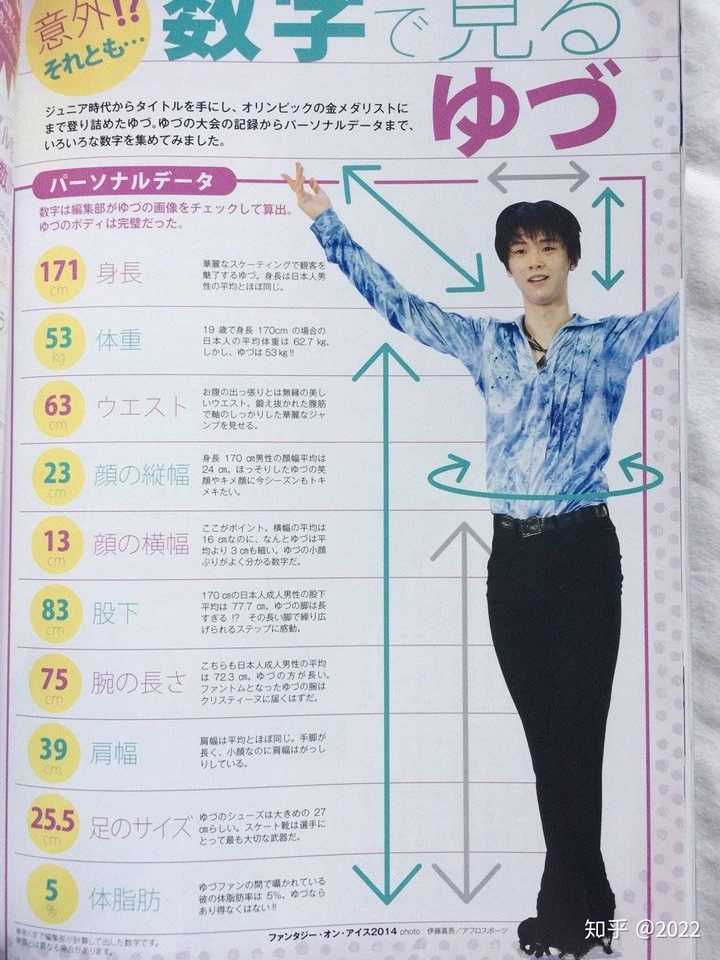 意外!?
それとも…
数字で見る
ゆづ
ジュニア時代からタイトルを手にし、オリンピックの金メダリストに
まで登り詰めたゆづ。ゆづの大会の記録からパーソナルデータまで、
いろいろな数字を集めてみました。
パーソナルデータ
数字は編集部がゆづの画像をチェックして算出。
ゆづのボディは完璧だった。
171
cm
身長
華麗なスケーティングで観客を
魅了するゆづ。身長は日本人男
性の平均とほぼ同じ。
53
kg
体重
19 歳で身長 170cm の場合の
日本人の平均体重は 62.7 kg。
しかし、ゆづは 53 kg!!
63
cm
ウエスト
お腹の出っ張りとは無縁の美し
いウエスト。鍛え抜かれた腹筋
で軸のしっかりした華麗なジャ
ンプを見せる。
23
cm
顔の縦幅
身長 170 cm男性の顔幅平均は
24 cm。ほっそりしたゆづの笑
顔やキメ顔に今シーズンもトキ
メキたい。
13
cm
顔の横幅
ここがポイント。横幅の平均は
16 cmなのに、なんとゆづは平
均より 3 cmも細い。ゆづの小顔
ぶりがよく分かる数字だ。
83
cm
股下
170 cmの日本人成人男性の股下
平均は 77.7 cm。ゆづの脚は長
すぎる !? その長い脚で繰り広
げられるステップに感動。
75
cm
腕の長さ
こちらも日本人成人男性の平均
は 72.3 cm。ゆづの方が長い。
ファントムとなったゆづの腕は
クリスティーヌに届くはずだ。
39
cm
肩幅
肩幅は平均とほぼ同じ。手脚が
長く、小顔なのに肩幅はがっし
りしている。
25.5
cm
足のサイズ
ゆづのシューズは大きめの 27
cmらしい。スケート靴は選手に
とって最も大切な武器だ。
5
%
体脂肪
ゆづファンの間で囁かれている
彼の体脂肪率は 5%。ゆづなら
あり得なくはない!!
まで編集部が計算して出した数字です。
とは異なる場合があります。
ファンタジー・オン・アイス2014 photo 伊藤真吾／アフロスポーツ
知乎 @2022